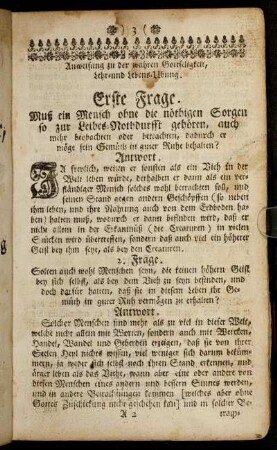 ( 3 )
Anweisung zu der wahren Gottseligkeit,
Lehr- und Lebens-Ubung.
Erste Frage.
Muß ein Mensch ohne die nöthigen Sorgen
so zur Leibes-Nothdurfft gehören, auch
mehr beobachten oder betrachten, dadurch er
möge sein Gemüth in guter Ruhe behalten?
Antwort.
JA freylich, wenn er sonsten als ein Vieh in der
Welt leben würde, derhalben er dann als ein ver-
ständiger Mensch solches wohl betrachten soll, und
seinen Stand gegen andern Geschöpffen (so neben
ihm leben, und ihre Nahrung auch von dem Erdboden ha-
ben) halten muß, wodurch er dann befinden wird, daß er
nicht allein in der Erkantnüß (die Creaturen) in vielen
Stücken wird übertreffen, sondern daß auch viel ein höherer
Geist bey ihm seye, als bey den Creaturen.
2. Frage.
Solten auch wohl Menschen seyn, die keinen höhern Geist
bey sich selbst, als bey dem Vieh zu seyn befinden, und
doch dafür halten, daß sie in diesem Leben ihr Ge-
müth in guter Ruh vermögen zu erhalten?
Antwort.
Solcher Menschen sind mehr als zu viel in dieser Welt,
welche nicht allein mit Worten, sondern auch mit Wercken,
Handel, Wandel und Geberden erzeigen, daß sie von ihrer
Seelen Heyl nichts wissen, viel weniger sich darum beküm-
mern, ja weder sich selbst noch ihren Stand erkennen, und
ärger leben als das Viehe, wann aber eine oder andere von
diesen Menschen eines andern und bessern Sinnes werden,
und in andere Betrachtungen kommen [welches aber ohne
Gottes Zuschickung nicht geschehen kan] und in solcher Be-
A 2 trach-